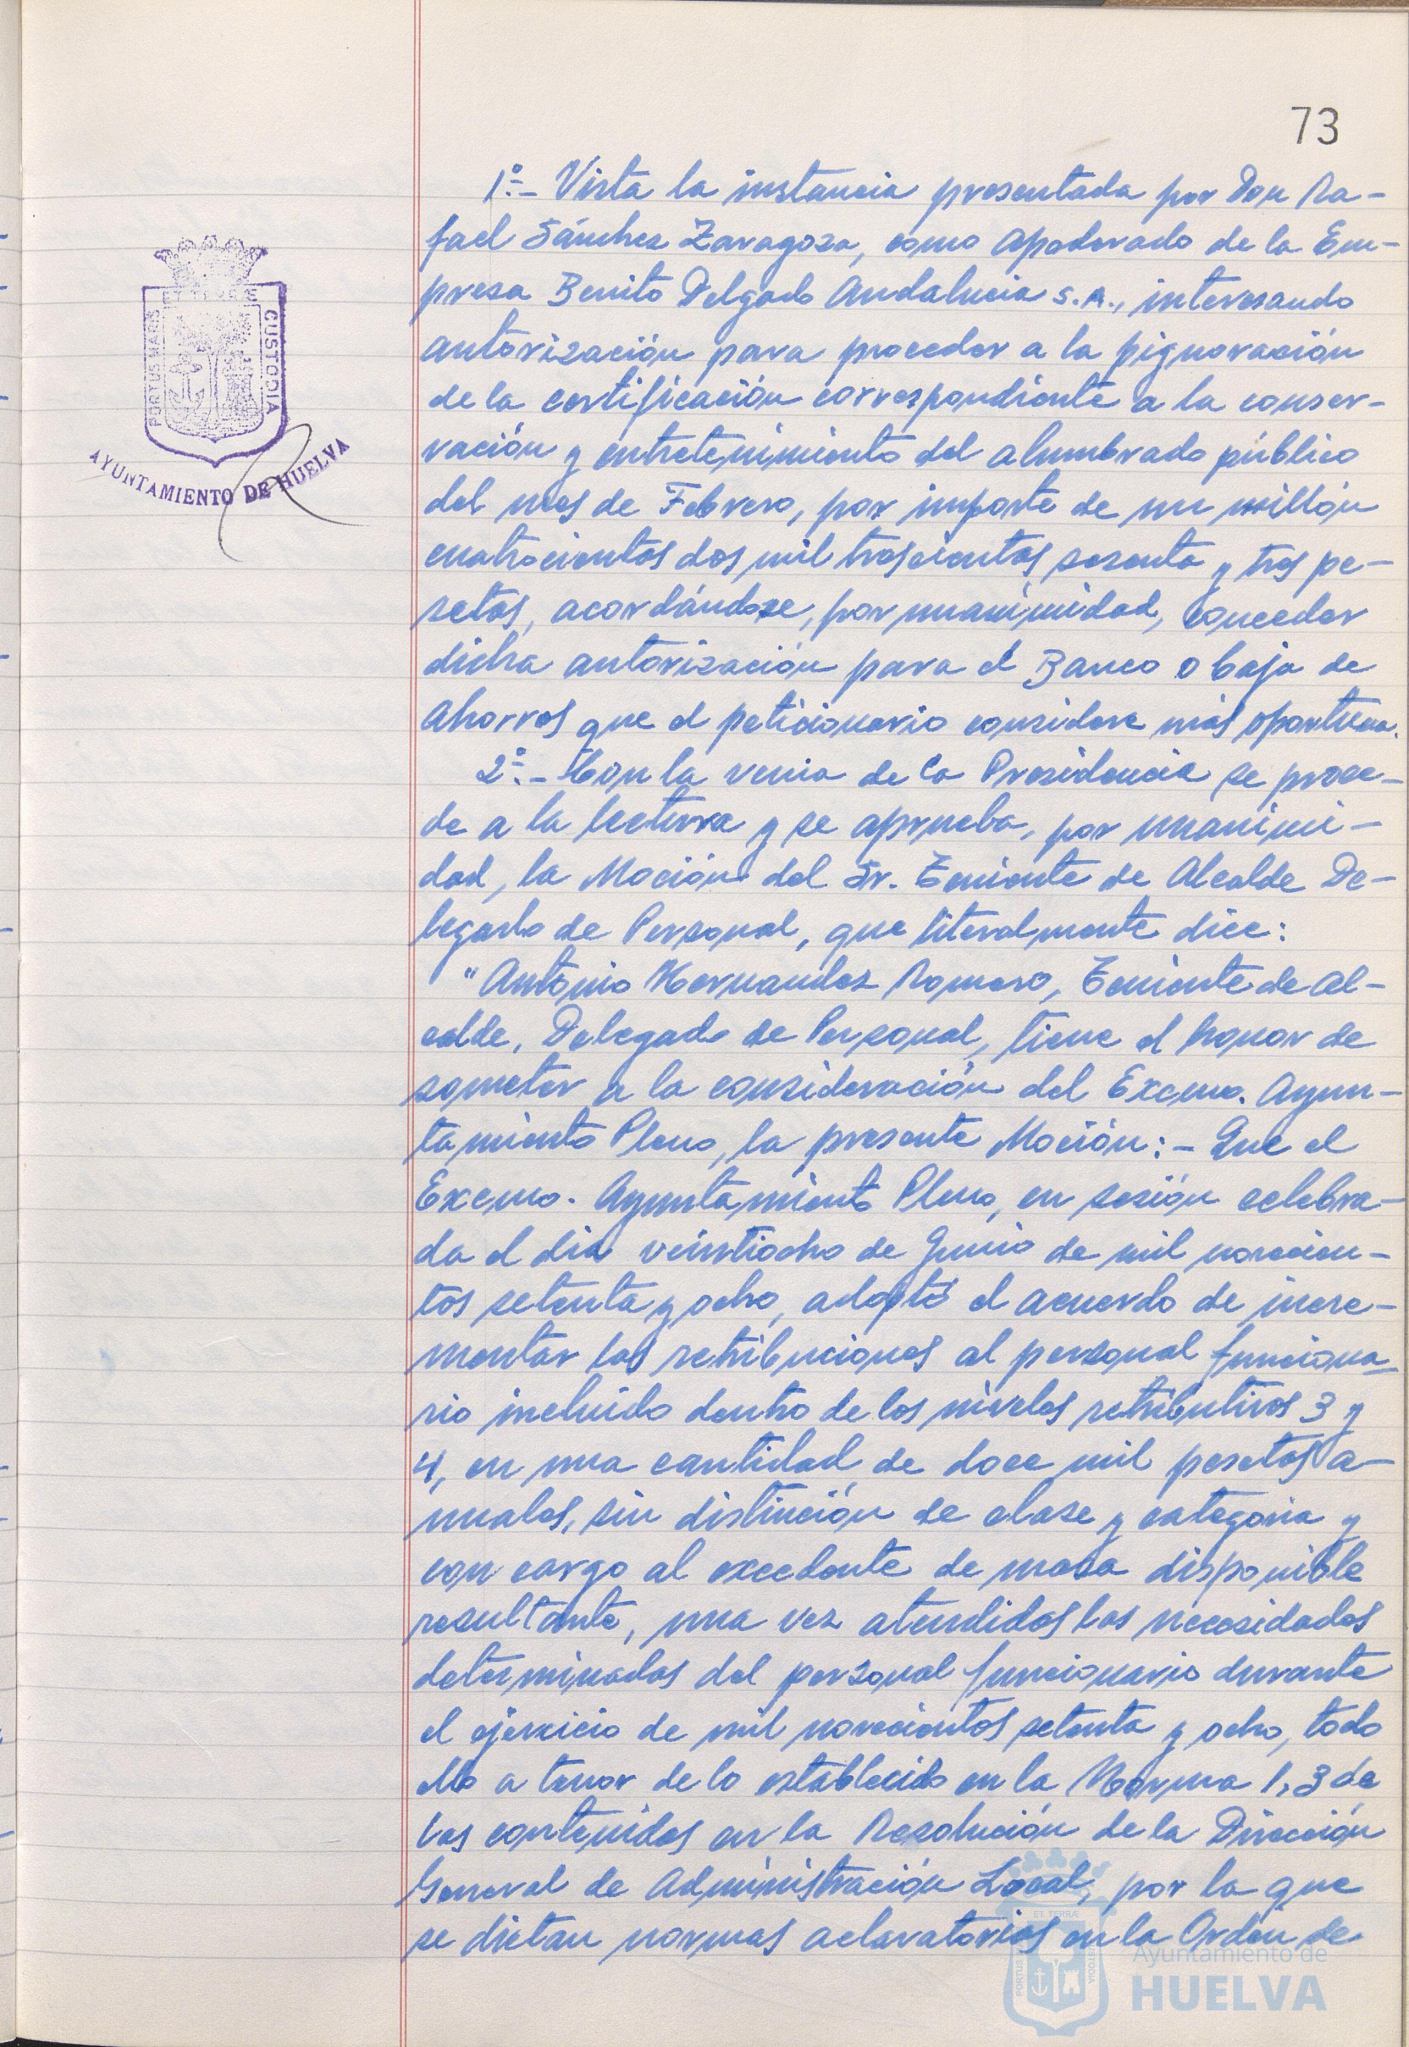 73
1º.- Vista la instancia presentada por Don Ra-
fael Sánchez Zaragoza, como apoderado de la Em-
presa Benito Delgado Andalucia S.A., interesando
autorización para proceder a la pignoración
de la certificación correspondiente a la conser-
vación y entretenimiento del alumbrado público
del mes de Febrero, por importe de un millón
cuatrocientos dos mil trescientos sesenta y tres pe-
setas, acordándose, por unanimidad, conceder
dicha autorización para el Banco o Caja de
Ahorros que el peticionario considere más oportuna.
2º.- Con la venia de la Presidencia se proce-
de a la lectura y se aprueba, por unanimi-
dad, la Moción del Sr. Teniente de Alcalde De-
legado de Personal, que literalmente dice:
"Antonio Hernandez Romero, Teniente de Al-
calde, Delegado de Personal, tiene el honor de
someter a la consideración del Excmo. Ayun-
tamiento Pleno, la presente Moción: - Que el
Excmo. Ayuntamiento Pleno, en sesión celebra-
da el dia veintiocho de Junio de mil novecien-
tos setenta y ocho, adoptó el acuerdo de incre-
mentar las retribuciones al personal funciona-
rio incluido dentro de los niveles retributivos 3 y
4, en una cantidad de doce mil pesetas a-
nuales, sin distinción de clase y categoria y
con cargo al excedente de masa disponible
resultante, una vez atendidas las necesidades
determinadas del personal funcionario durante
el ejercicio de mil novecientos setenta y ocho, todo
ello a tenor de lo establecido en la Norma 1,3 de
las contenidas en la Resolución de la Dirección
General de Administración Local, por la que
se dictan normas aclaratorias en la Orden de
PORTUS MARIS ET TERRÆ CUSTODIA
AYUNTAMIENTO DE HUELVA
Ayuntamiento de
HUELVA